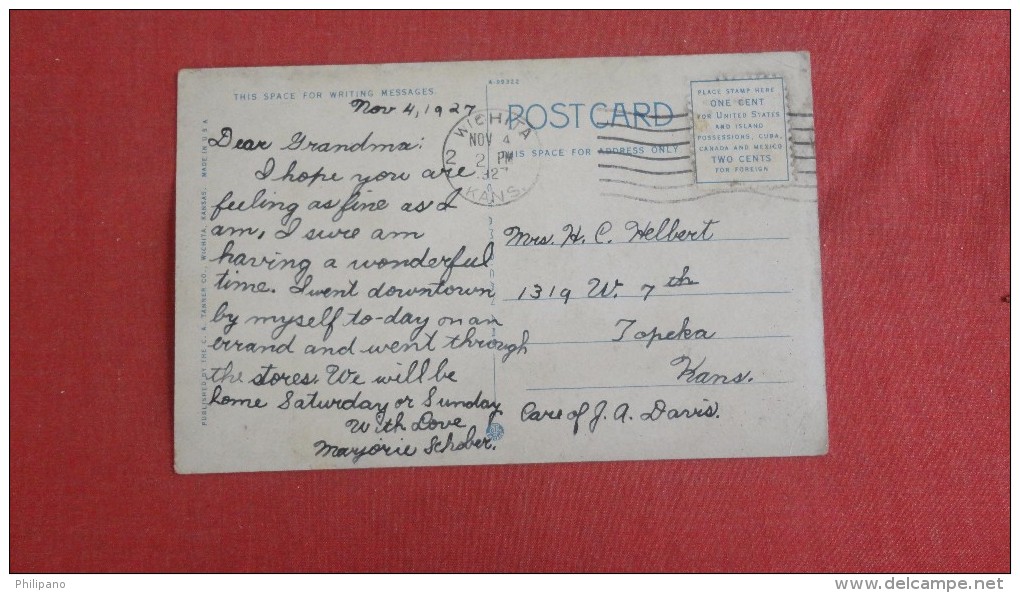 THIS SPACE FOR WRITING MESSAGES
Nov 4, 1927
Dear Grandma:
I hope you are
feeling as fine as I
am, I sure am
having a wonderful
time. I went downtown
by myself to-day on an
errand and went through
the stores. We will be
home Saturday or Sunday
With Love
Marjorie Schober.
PUBLISHED BY THE C. A. TANNER CO., WICHITA, KANSAS. MADE IN U.S.A.
POST CARD
THIS SPACE FOR ADDRESS ONLY
WICHITA
NOV 4
2 2 PM
KANS.
PLACE STAMP HERE
ONE CENT
FOR UNITED STATES
AND ISLAND
POSSESSIONS, CUBA,
CANADA AND MEXICO
TWO CENTS
FOR FOREIGN
Mrs. H. C. Helbert
1319 W. 7th
Topeka
Kans.
Care of J. A. Davis.
Philipano
www.delcampe.net